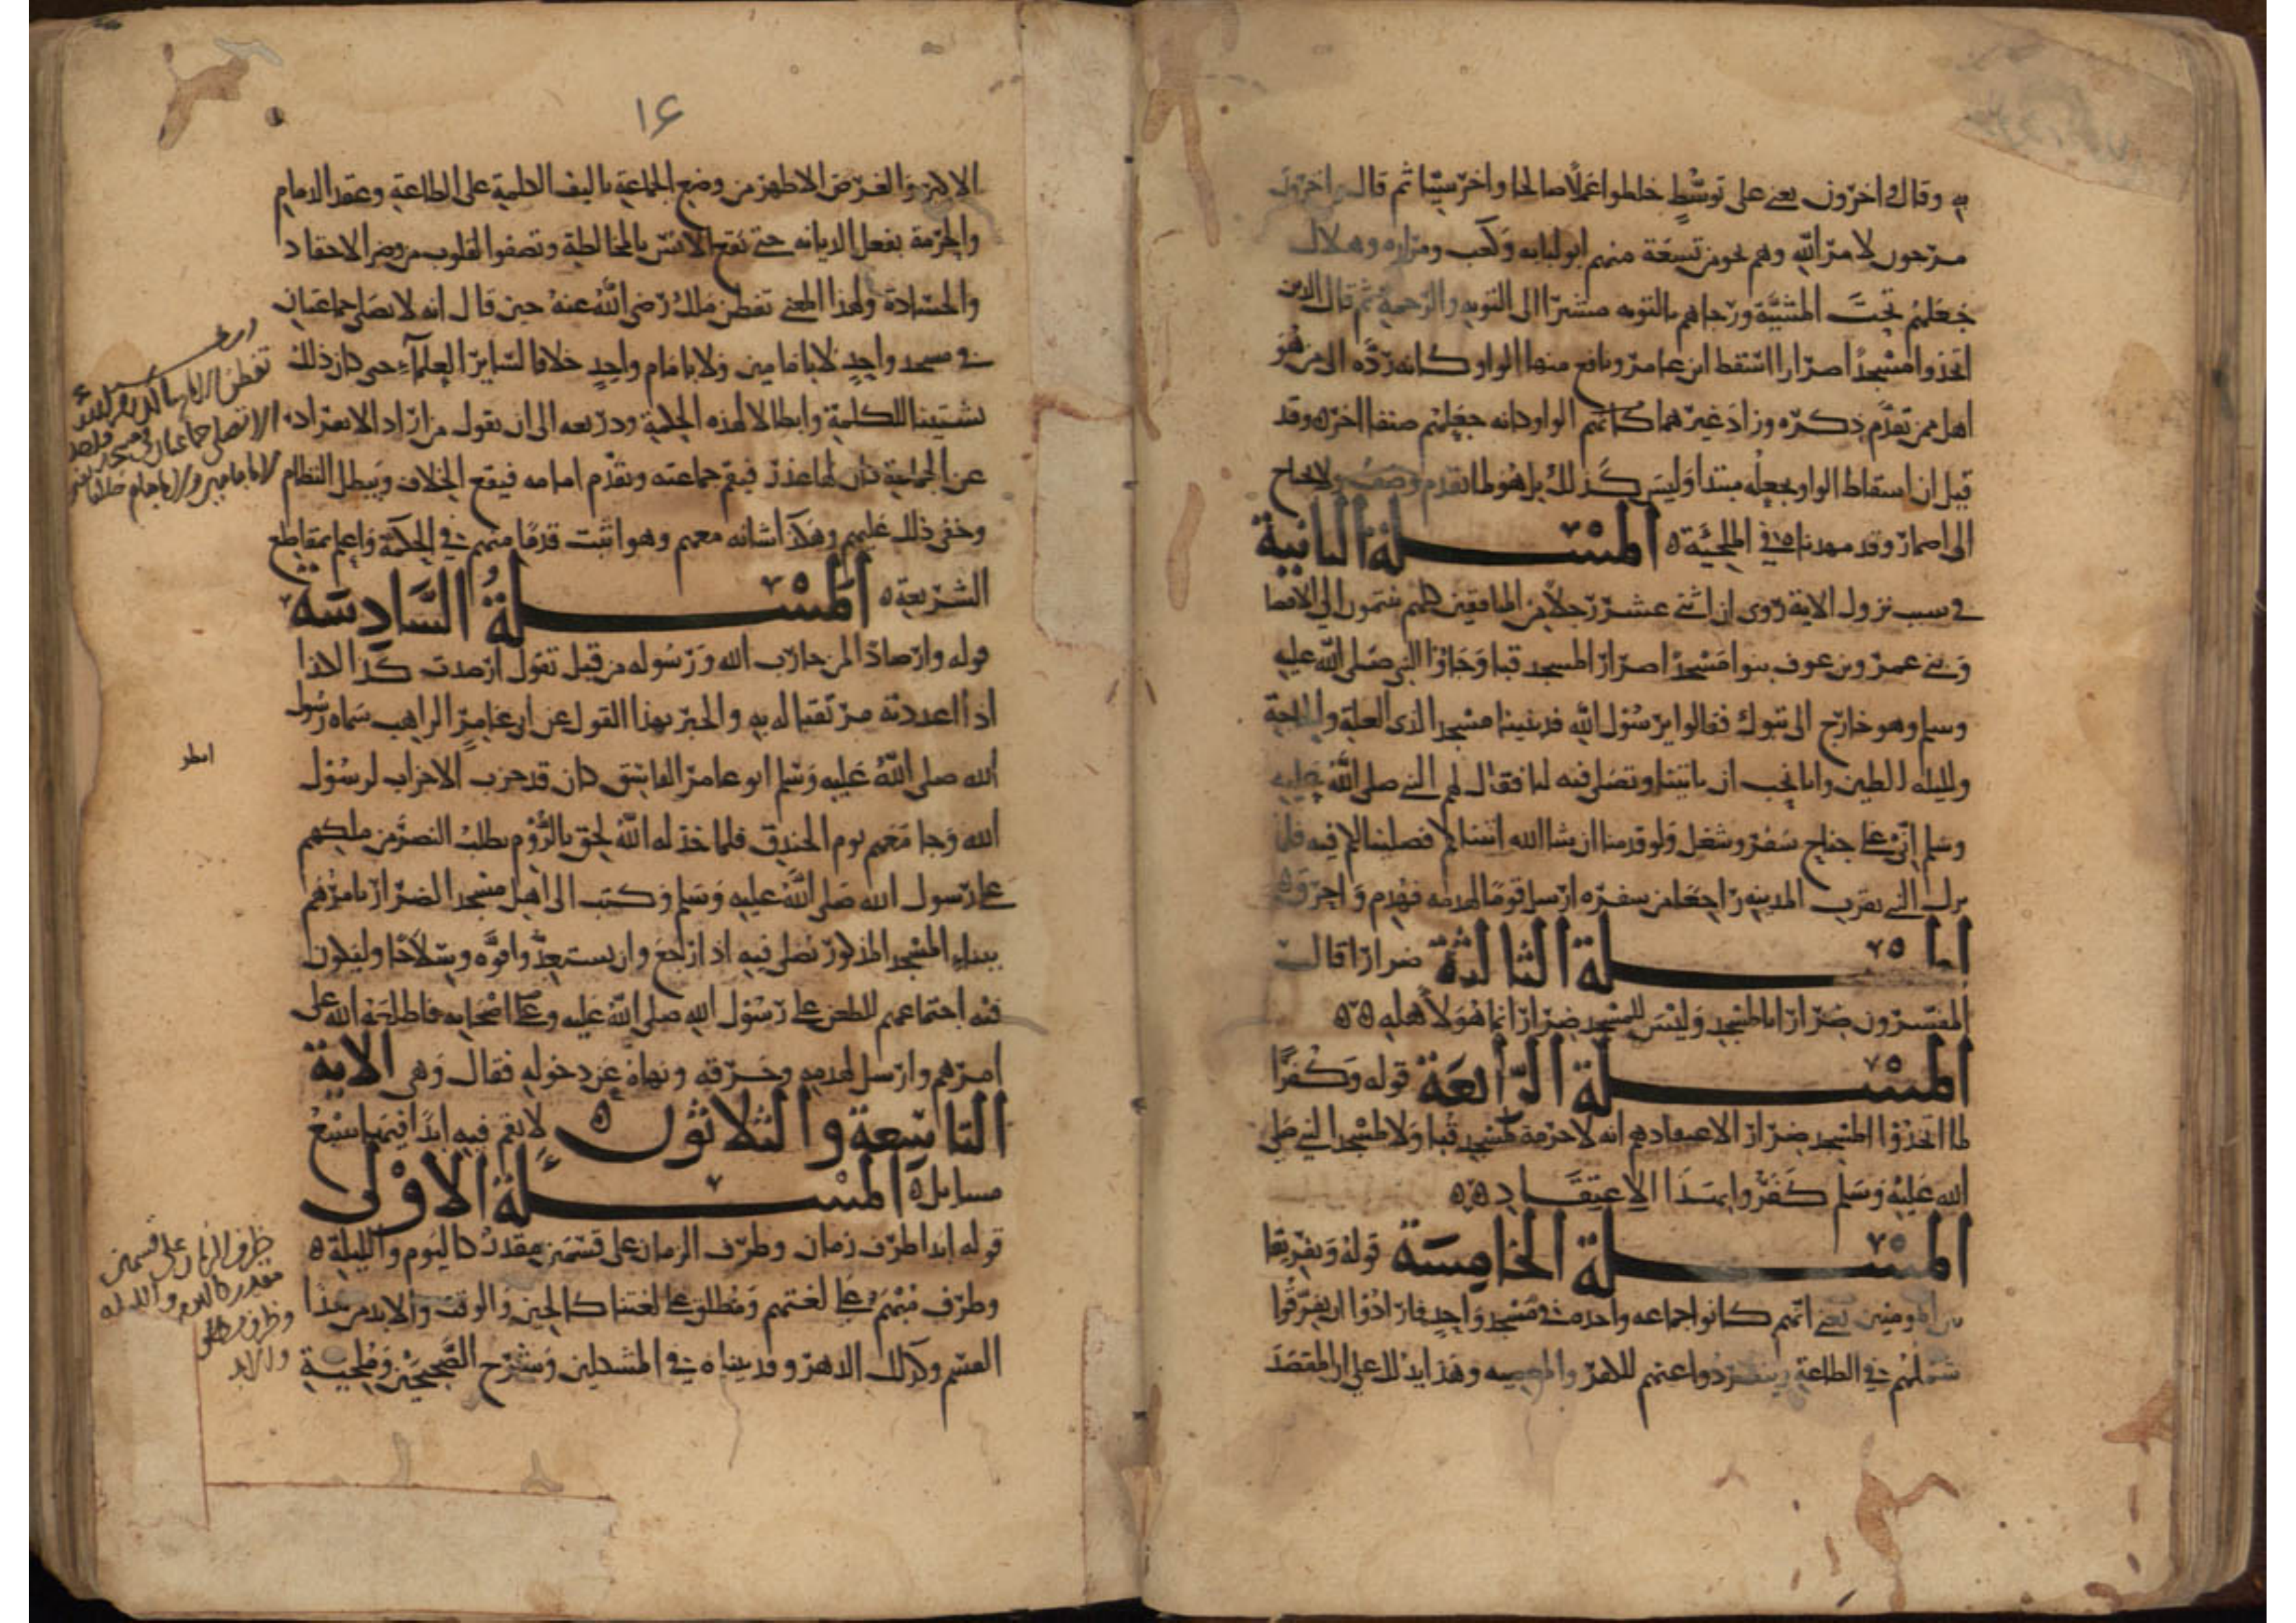 به وقال اخرون يعني على توسط خلطوا عملا صالحا واخر سيئا ثم قال واخرون
مرجون لامر الله وهم نحو من تسعة منهم ابو لبابه وكعب ومراره وهلال
فجعلهم تحت المشيئة ورجاهم بالتوبه مشيرا الى التوبه والرحمة ثم قال الذين
اتخذوا مسجدا ضرارا اسقط ابن عامر ونافع منها الواو كانه رده الى من هو
اهل ممن تقدم ذكره وزاد غيرهما كانهم الواو كانه جعلهم صنفا اخر وقد
قيل ان اسقاط الواو يجعله مبتدا وليس كذلك بل هو لما تقدم وصف ولا يحتاج
الى اضمار وقد مهدناه في الملجئة ه المسلة الثانية
في سبب نزول الاية روي ان اثني عشر رجلا من المنافقين كلهم ينتمون الى الانصا
وبني عمرو بن عوف بنوا مسجدا ضرارا لمسجد قبا وجاؤا النبي صلى الله عليه
وسلم وهو خارج الى تبوك فقالوا يرسول الله قد بنينا مسجدا لذي العلة والحاجة
ولليله المطيره وانا نحب ان تاتينا وتصلي فيه لنا فقال لهم النبي صلى الله عليه
وسلم اني على جناح سفر وشغل ولو قدمنا ان شا الله اتيناكم فصلينا لكم فيه فلما
نزل النبي بقرب المدينه راجعا من سفره ارسل قوما لهدمه فهدم واحرق ه
المسلة الثالثة ضرارا قال
المفسرون ضرارا بالمسجد وليس للمسجد ضرار انما هو لاهله ه ه
المسلة الرابعة قوله وكفرا
لما اتخذوا المسجد ضرارا لاعتقادهم انه لا حرمة لمسجد قبا ولا لمسجد النبي صلى
الله عليه وسلم كفروا بهذا الاعتقاد ه ه
المسلة الخامسة قوله وتفريقا
بين المومنين يعني انهم كانوا جماعه واحده في مسجد واحد فارادوا ان يفرقوا
شملهم في الطاعة وينفردوا عنهم للكفر والمعصيه وهذا يدلك على ان المقصد
١٤
الاكبر والغرض الاظهر من وضع الجماعة تاليف الكلمة على الطاعة وعقد الذمام
والحرمة بفعل الديانه حتى يقع الانس بالمخالطة وتصفوا القلوب من وضر الاحقاد
والحسادة ولهذا المعنى تفطن ملك رضي الله عنه حين قال انه لا تصلى جماعتان
في مسجد واحد لا بامامين ولا بامام واحد خلافا لسائر العلمآء حتى كان ذلك
تشتيتا للكلمة وابطالا لهذه الحكمة وذريعه الى ان نقول من اراد الانفراد
عن الجماعة كان له عذر فيقيم جماعته ويقدم امامه فيقع الخلاف ويبطل النظام
وخفي ذلك عليهم وهكذا شانه معهم وهو اثبت قدما منهم في الحكمة واعلم بمقاطع
الشريعة ه المسلة السادسة
قوله وارصادا لمن حارب الله ورسوله من قبل تقول ارصدت كذا لكذا
اذا اعددته مرتقبا له به والخبر بهذا القول عن ابي عامر الراهب سماه رسول
الله صلى الله عليه وسلم ابو عامر الفاسق كان قد حزب الاحزاب لرسول
الله وجا معهم يوم الخندق فلما خذله الله لحق بالروم يطلب النصر من ملكهم
على رسول الله صلى الله عليه وسلم وكتب الى اهل مسجد الضرار يامرهم
ببناء المسجد المذكور يصلي فيه اذا رجع وان يستعدوا قوه وسلاحا وليكون
فيه اجتماعهم للطعن على رسول الله صلى الله عليه وعلى اصحابه فاطلعه الله على
امرهم وارسل لهدمه وحرقه ونهاه عن دخوله فقال وهي الاية
التاسعة والثلاثون ه لا تقم فيه ابدا فيها سبع
مسايل ه المسلة الاولى
قوله ابدا ظرف زمان وظرف الزمان على قسمين مقدر كاليوم والليلة ه
وظرف مبهم على لغتهم ومطلق على لغتنا كالحين والوقت والابد من هذا
القسم وكذلك الدهر وقد بيناه في المشكلين وشرح الصحيحين وملجية
تفطن
الا تصلى جماعتان في مسجد واحد
لا بامامين ولا بامام
انظر
ظرف الزمان على قسمين
مقدر كاليوم والليله
وظرف مطلق
والابد